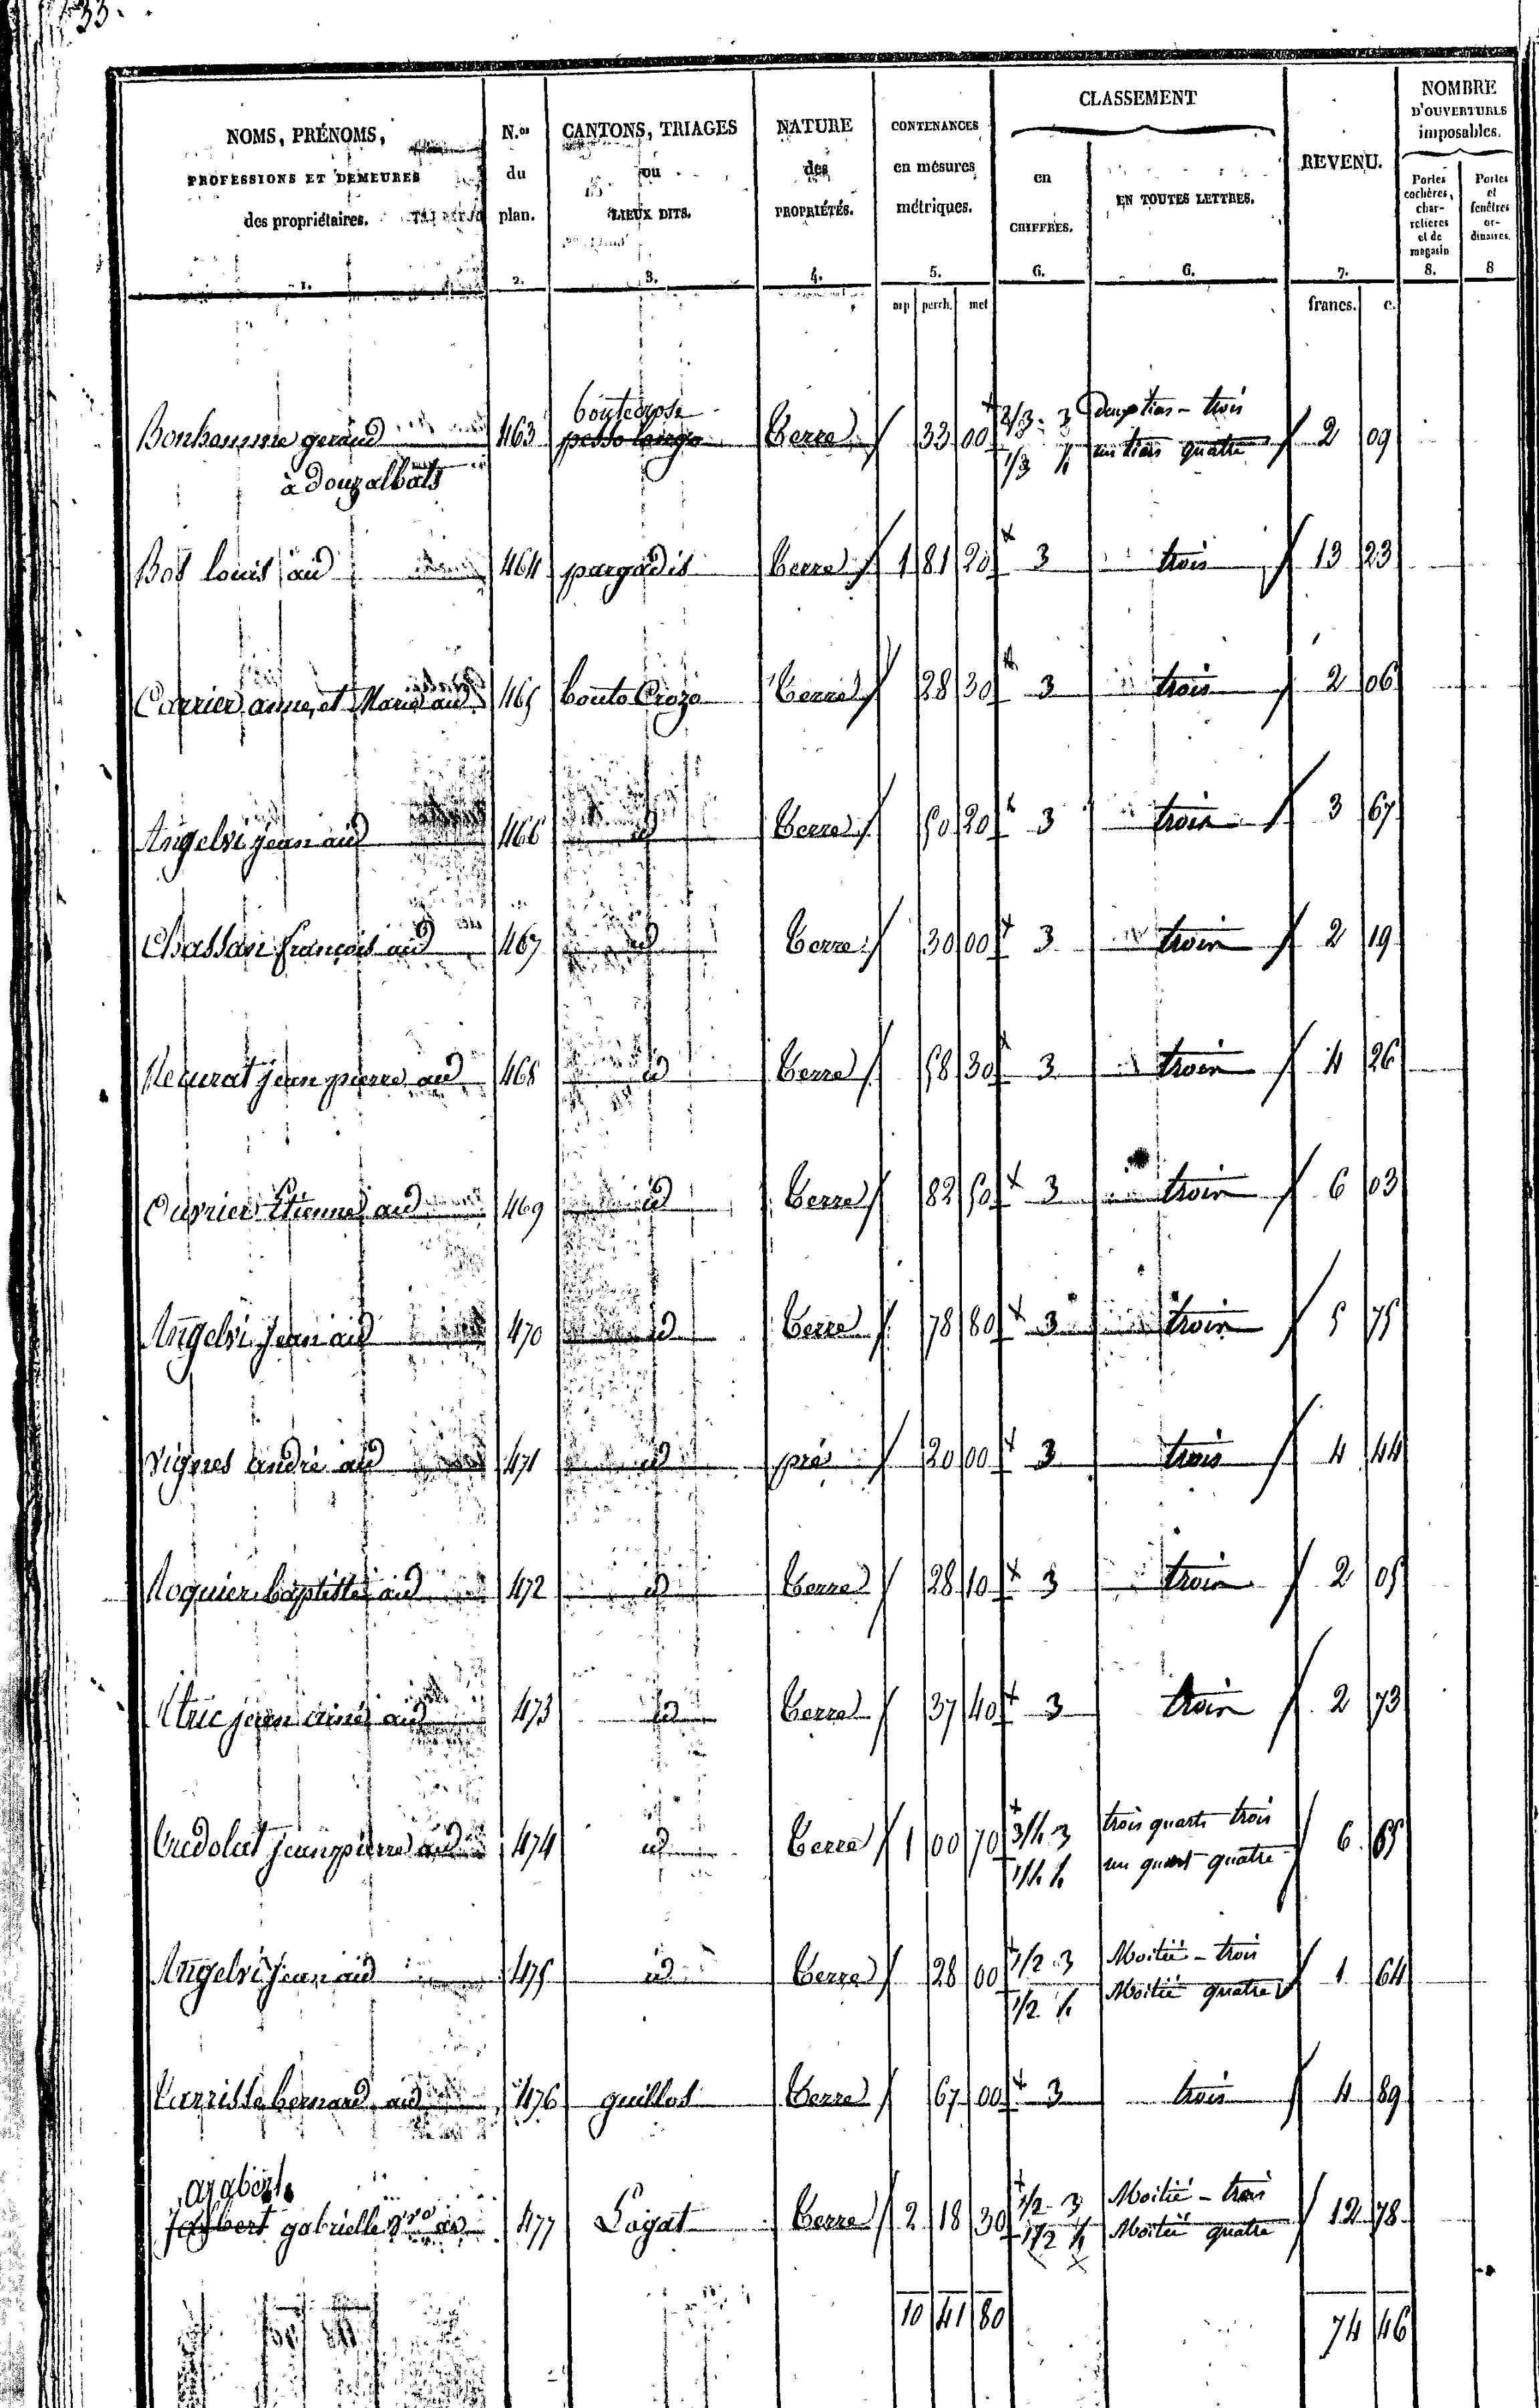 33.
NOMS, PRÉNOMS, PROFESSIONS ET DEMEURES des propriétaires. 1.
N.os du plan. 2.
CANTONS, TRIAGES ou LIEUX DITS. 3.
NATURE des PROPRIÉTÉS. 4.
CONTENANCES en mésures métriques. 5.
CLASSEMENT
en CHIFFRES. 6.
EN TOUTES LETTRES. 6.
REVENU. 7.
NOMBRE D'OUVERTURES imposables.
Portes cochères, charretières et de magasin 8.
Portes et fenêtres ordinaires. 8
arp perch. met francs. c.
boutecroze
Bonhaumme geraud 463 pesso longo terre 33 00 2/3 3 deux tiers - trois 2 09
à douzalbats 1/3 4 un tiers quatre
Bos louis aud 464 pargadis terre 1 81 20 3 trois 13 23
Carrier anne, et Marie aud 465 bouto Crozo terre 28 30 3 trois 2 06
Angelvi jean aud 466 id terre 50 20 3 trois 3 67
Chassan françois aud 467 id terre 30 00 3 trois 2 19
jean pierre aud 468 id terre 58 30 3 trois 4 26
Cuvrier Etienne aud 469 id terre 82 50 3 trois 6 03
Angelvi Jean aud 470 id terre 78 80 3 trois 5 75
Vignes andré aud 471 id pré 20 00 3 trois 4 44
Roquier baptiste aud 472 id terre 28 10 3 trois 2 05
jean ainé aud 473 id terre 37 40 3 trois 2 73
jean pierre aud 474 id terre 1 00 70 3/4 3 trois quarts trois 6 65
1/4 4 un quart quatre
Angelvi Jean aud 475 id terre 28 00 1/2 3 Moitié - trois 1 64
1/2 4 Moitié quatre
bernard aud 476 guillot terre 67 00 3 trois 4 89
ajalbert
Jalbert gabrielle aud 477 Logat terre 2 18 30 1/2 3 Moitié - trois 12 78
1/2 4 Moitié quatre
10 41 80 74 46